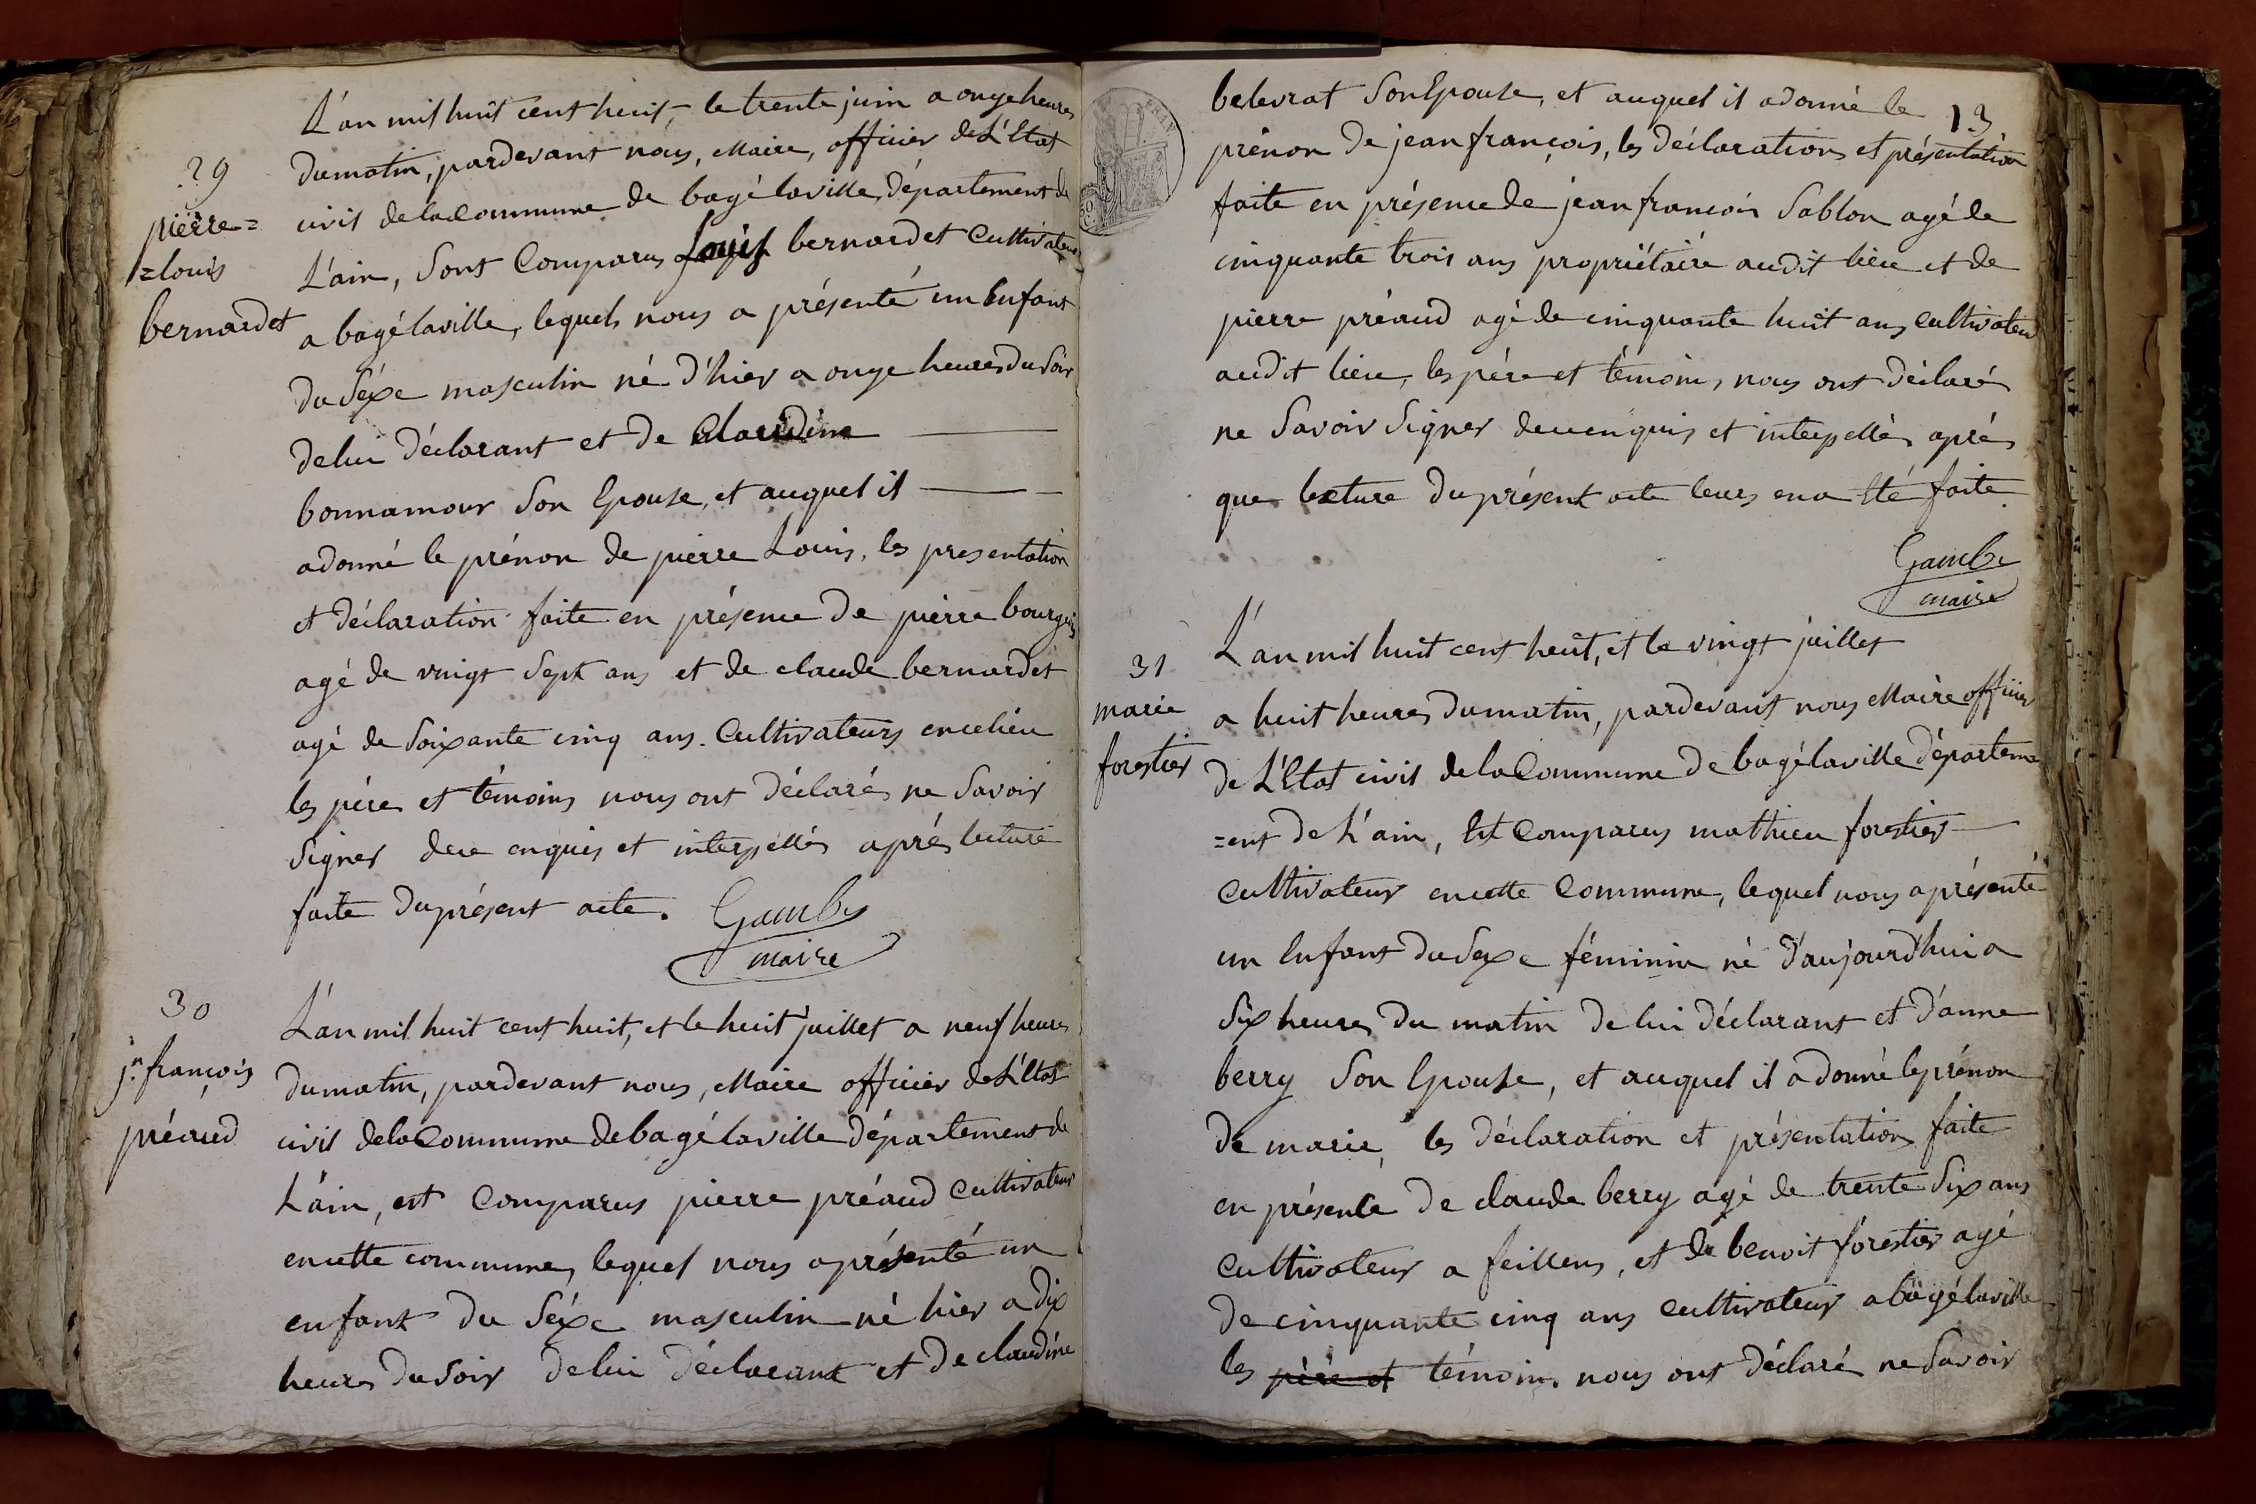 29
pierre=
=louis
bernardet
L'an mil huit cent huit, le trente juin a onze heures
du matin, pardevant nous, Maire, officier de L'Etat
civil de la Commune de bagé la ville, Département de
L'ain, Sont Comparus Louis bernardet Cultivateur
a bagé la ville, lequels nous a présenté un Enfant
du Séxe masculin né d'hier a onze heures du Soir
de lui déclarant et de Claudine
bonnamour Son Epouse, et auquel il
a donné le prénon de pierre Louis, les presentation
et déclaration faite en présence de pierre bourgeois
agé de vingt Sept ans et de claude bernardet
agé de Soixante cinq ans. Cultivateurs en ce lieu
les pére et témoins nous ont déclarés ne Savoir
Signer de ce enquis et interpéllés aprés lecture
faite du présent acte. Gambe
maire
30
jn. françois
préaud
L'an mil huit cent huit, et le huit juillet a neuf heures
du matin, pardevant nous, Maire officier de L'Etat
civil de la Commune de bagé la ville département de
L'ain, est Comparus pierre préaud Cultivateur
en cette commune, lequel nous a présenté un
enfant du Séxe masculin né hier a dix
heures du Soir de lui déclarant et de claudine
13
belevrat Son Epouse, et auquel il a donné le
prénon de jean françois, les déclarations et présentation
faite en présence de jean francois Sablon agé de
cinquante trois ans propriétaire audit lieu et de
pierre préaud agé de cinquante huit ans cultivateur
audit lieu, les pére et témoins nous ont déclarés
ne Savoir Signer de ce enquis et interpellés aprés
que lecture du présent acte leurs en a Eté faite.
Gambe
maire
31
marie
forestier
L'an mil huit cent huit, et le vingt juillet
a huit heures du matin, pardevant nous Maire officier
de L'Etat civil de la Commune de bagé la ville départem
=ent de L'ain, Est Comparus mathieu forestier
Cultivateur en cette Commune, lequel nous a présenté
un Enfant du Sexe féminin né d'aujourd'hui a
Six heures du matin de lui déclarant et d'anne
berry Son Epouse, et auquel il a donné le prénon
de marie, les déclaration et présentation faite
en présence de claude berry agé de trente Six ans
Cultivateur a feillens, et de benoit forestier agé
de cinquante cinq ans cultivateur a bagé la ville
les pére et témoins nous ont déclaré ne Savoir